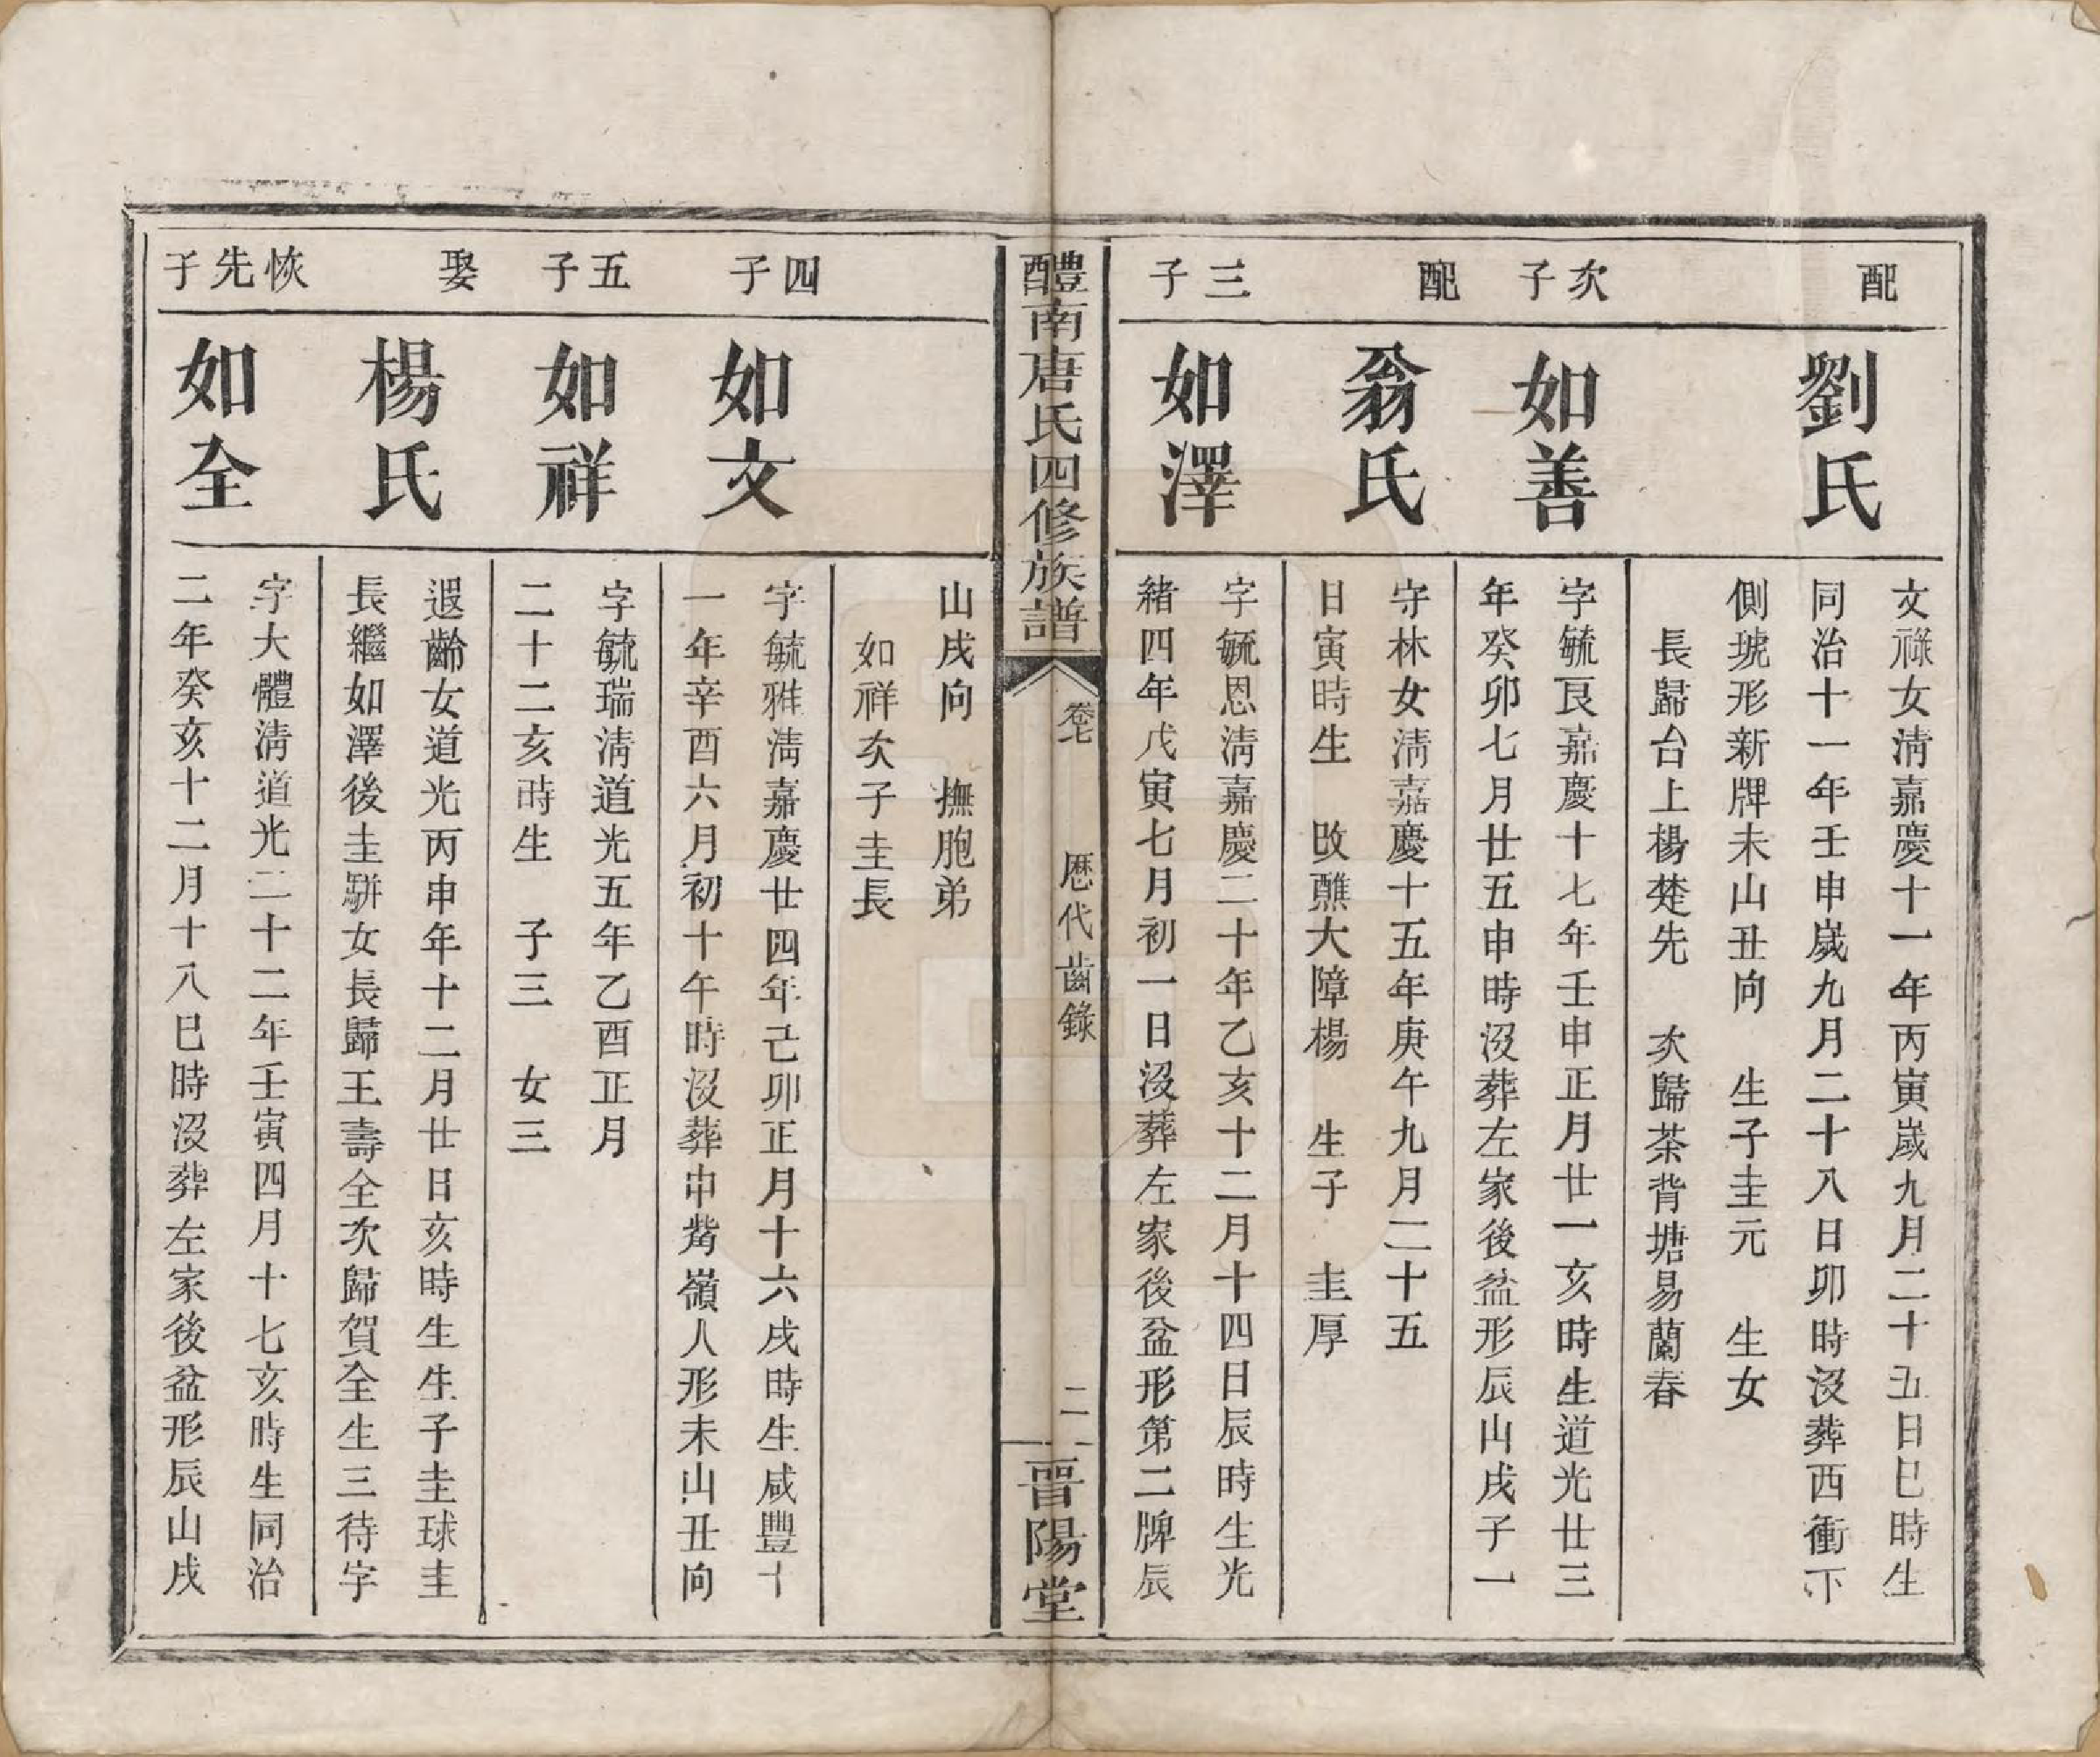 配
劉氏
文祿女淸嘉慶十一年丙寅歲九月二十五日巳時生
同治十一年壬申歲九月二十八日卯時沒葬西衝下
側琥形新牌未山丑向 生子圭元 生女
長歸台上楊楚先 次歸茶背塘易蘭春
次子
如善
字毓艮嘉慶十七年壬申正月廿一亥時生道光廿三
年癸卯七月廿五申時沒葬左家後盆形辰山戌子一
配
翁氏
守林女淸嘉慶十五年庚午九月二十五
日寅時生 改醮大障楊 生子 圭厚
三子
如澤
字毓恩淸嘉慶二十年乙亥十二月十四日辰時生光
緒四年戊寅七月初一日沒葬左家後盆形第二牌辰
醴南唐氏四修族譜
卷七
歷代齒錄
二
晉陽堂
山戌向 撫胞弟
如祥次子圭長
四子
如文
字毓雅淸嘉慶廿四年己卯正月十六戌時生咸豐十
一年辛酉六月初十午時沒葬中嵛嶺人形未山丑向
五子
如祥
字毓瑞淸道光五年乙酉正月
二十二亥時生 子三 女三
娶
楊氏
遐齡女道光丙申年十二月廿日亥時生生子圭球圭
長繼如澤後圭駢女長歸王壽全次歸賀全生三待字
恢先子
如全
字大體淸道光二十二年壬寅四月十七亥時生同治
二年癸亥十二月十八巳時沒葬左家後盆形辰山戌